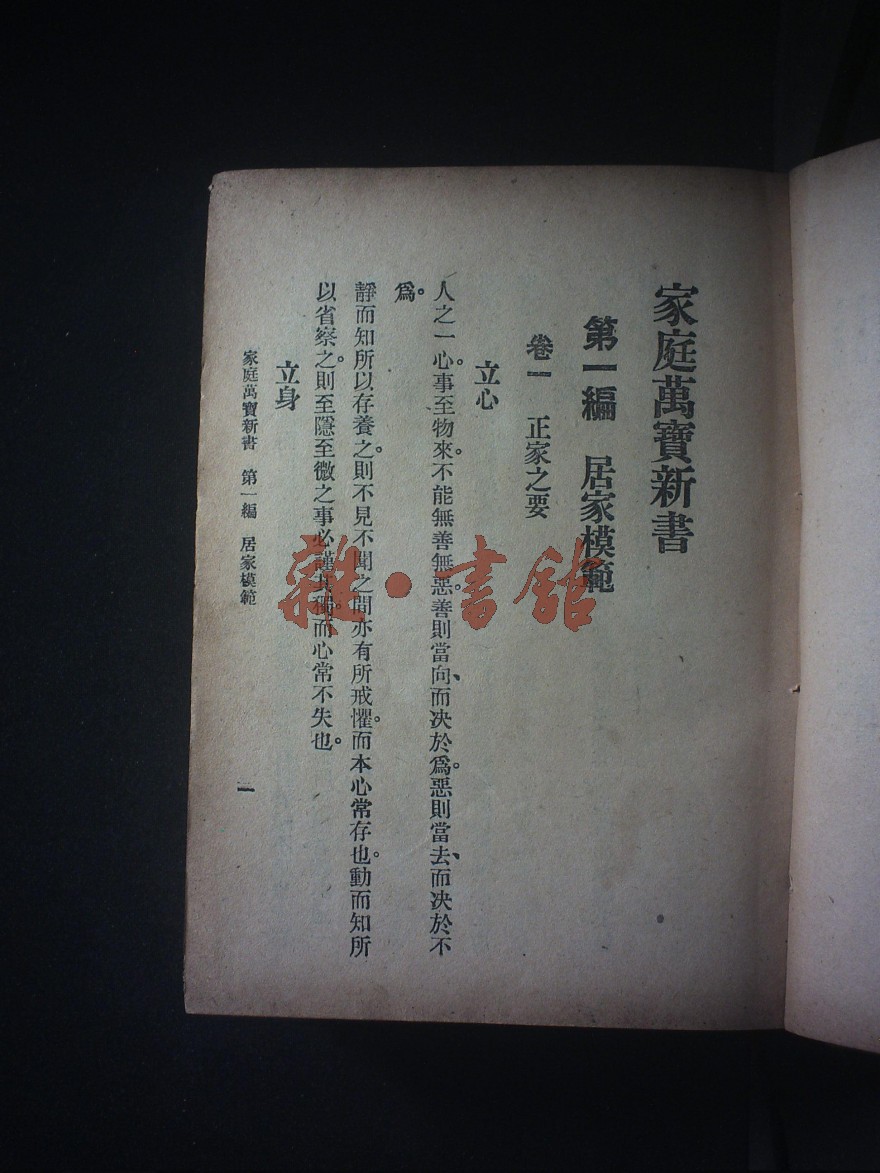 家庭萬寶新書
第一編　居家模範
卷一　正家之要
立心
人之一心。事至物來。不能無善無惡。善則當向、而決於爲。惡則當去、而決於不
爲。
靜而知所以存養之。則不見不聞之間亦有所戒懼。而本心常存也。動而知所
以省察之。則至隱至微之事必謹其獨。而心常不失也。
立身
家庭萬寶新書　第一編　居家模範
一
雜·書館